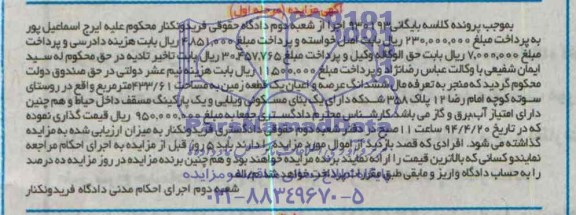 آگهی مزایده (مرحله اول)
بموجب پرونده کلاسه بایگانی ۹۳۰۱۹۳ اجرا از شعبه دوم دادگاه حقوقی فریدونکنار محکوم علیه ایرج اسماعیل پور
به پرداخت مبلغ ۲۳۰,۰۰۰,۰۰۰ ریال بابت اصل خواسته و پرداخت مبلغ ۴,۸۵۱,۰۰۰ ریال بابت هزینه دادرسی و پرداخت
مبلغ ۷,۰۰۰,۰۰۰ ریال بابت حق الوکاله وکیل و پرداخت مبلغ ۳۰,۴۵۷,۷۶۵ ریال بابت تاخیر تادیه در حق محکوم له سید
ایمان شفیعی با وکالت عباس رضانژاد و پرداخت مبلغ ۱۱,۵۰۰,۰۰۰ ریال بابت هزینه نیم عشر دولتی در حق صندوق دولت
محکوم گردید که منجر به تعرفه مال ششدانگ عرصه و اعیان یک قطعه زمین به مساحت ۴۳۳/۶۱ مترمربع واقع در روستای
سوته کوچه امام رضا ۱۲ پلاک ۳۵۸ شد که دارای یک بنای مسکونی ویلایی و یک پارکینگ مسقف داخل حیاط و هم چنین
دارای امتیاز آب، برق و گاز می باشد کارشناس محترم دادگستری جمعا به مبلغ ۹۵۰,۰۰۰,۰۰۰ ریال قیمت گذاری نموده
که در تاریخ ۹۴/۴/۲۰ ساعت ۱۱ صبح در دفتر شعبه دوم حقوقی دادگستری فریدونکنار به میزان ارزیابی شده به مزایده
گذاشته می شود. افرادی که قصد بازدید از اموال مورد مزایده را دارند باید ۵ روز قبل از مزایده به اجرای احکام مراجعه
نمایند و کسانی که بالاترین قیمت را ارائه نمایند برنده مزایده خواهند بود و هم چنین برنده مزایده در روز مزایده ده درصد
را به حساب دادگاه واریز و مابقی طبق مقررات پرداخت خواهد شد. م/الف
شعبه دوم اجرای احکام مدنی دادگاه فریدونکنار
۰۲۱-۸۸۳۴۹۶۷۰-۵